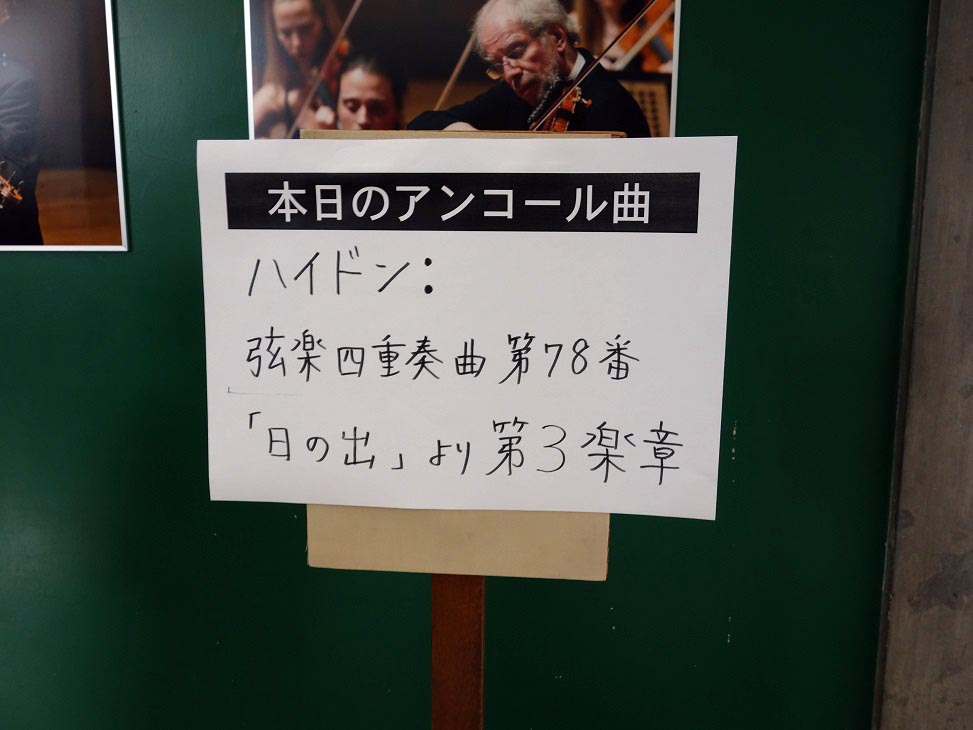 本日のアンコール曲
ハイドン:
弦楽四重奏曲第78番
「日の出」より第3楽章